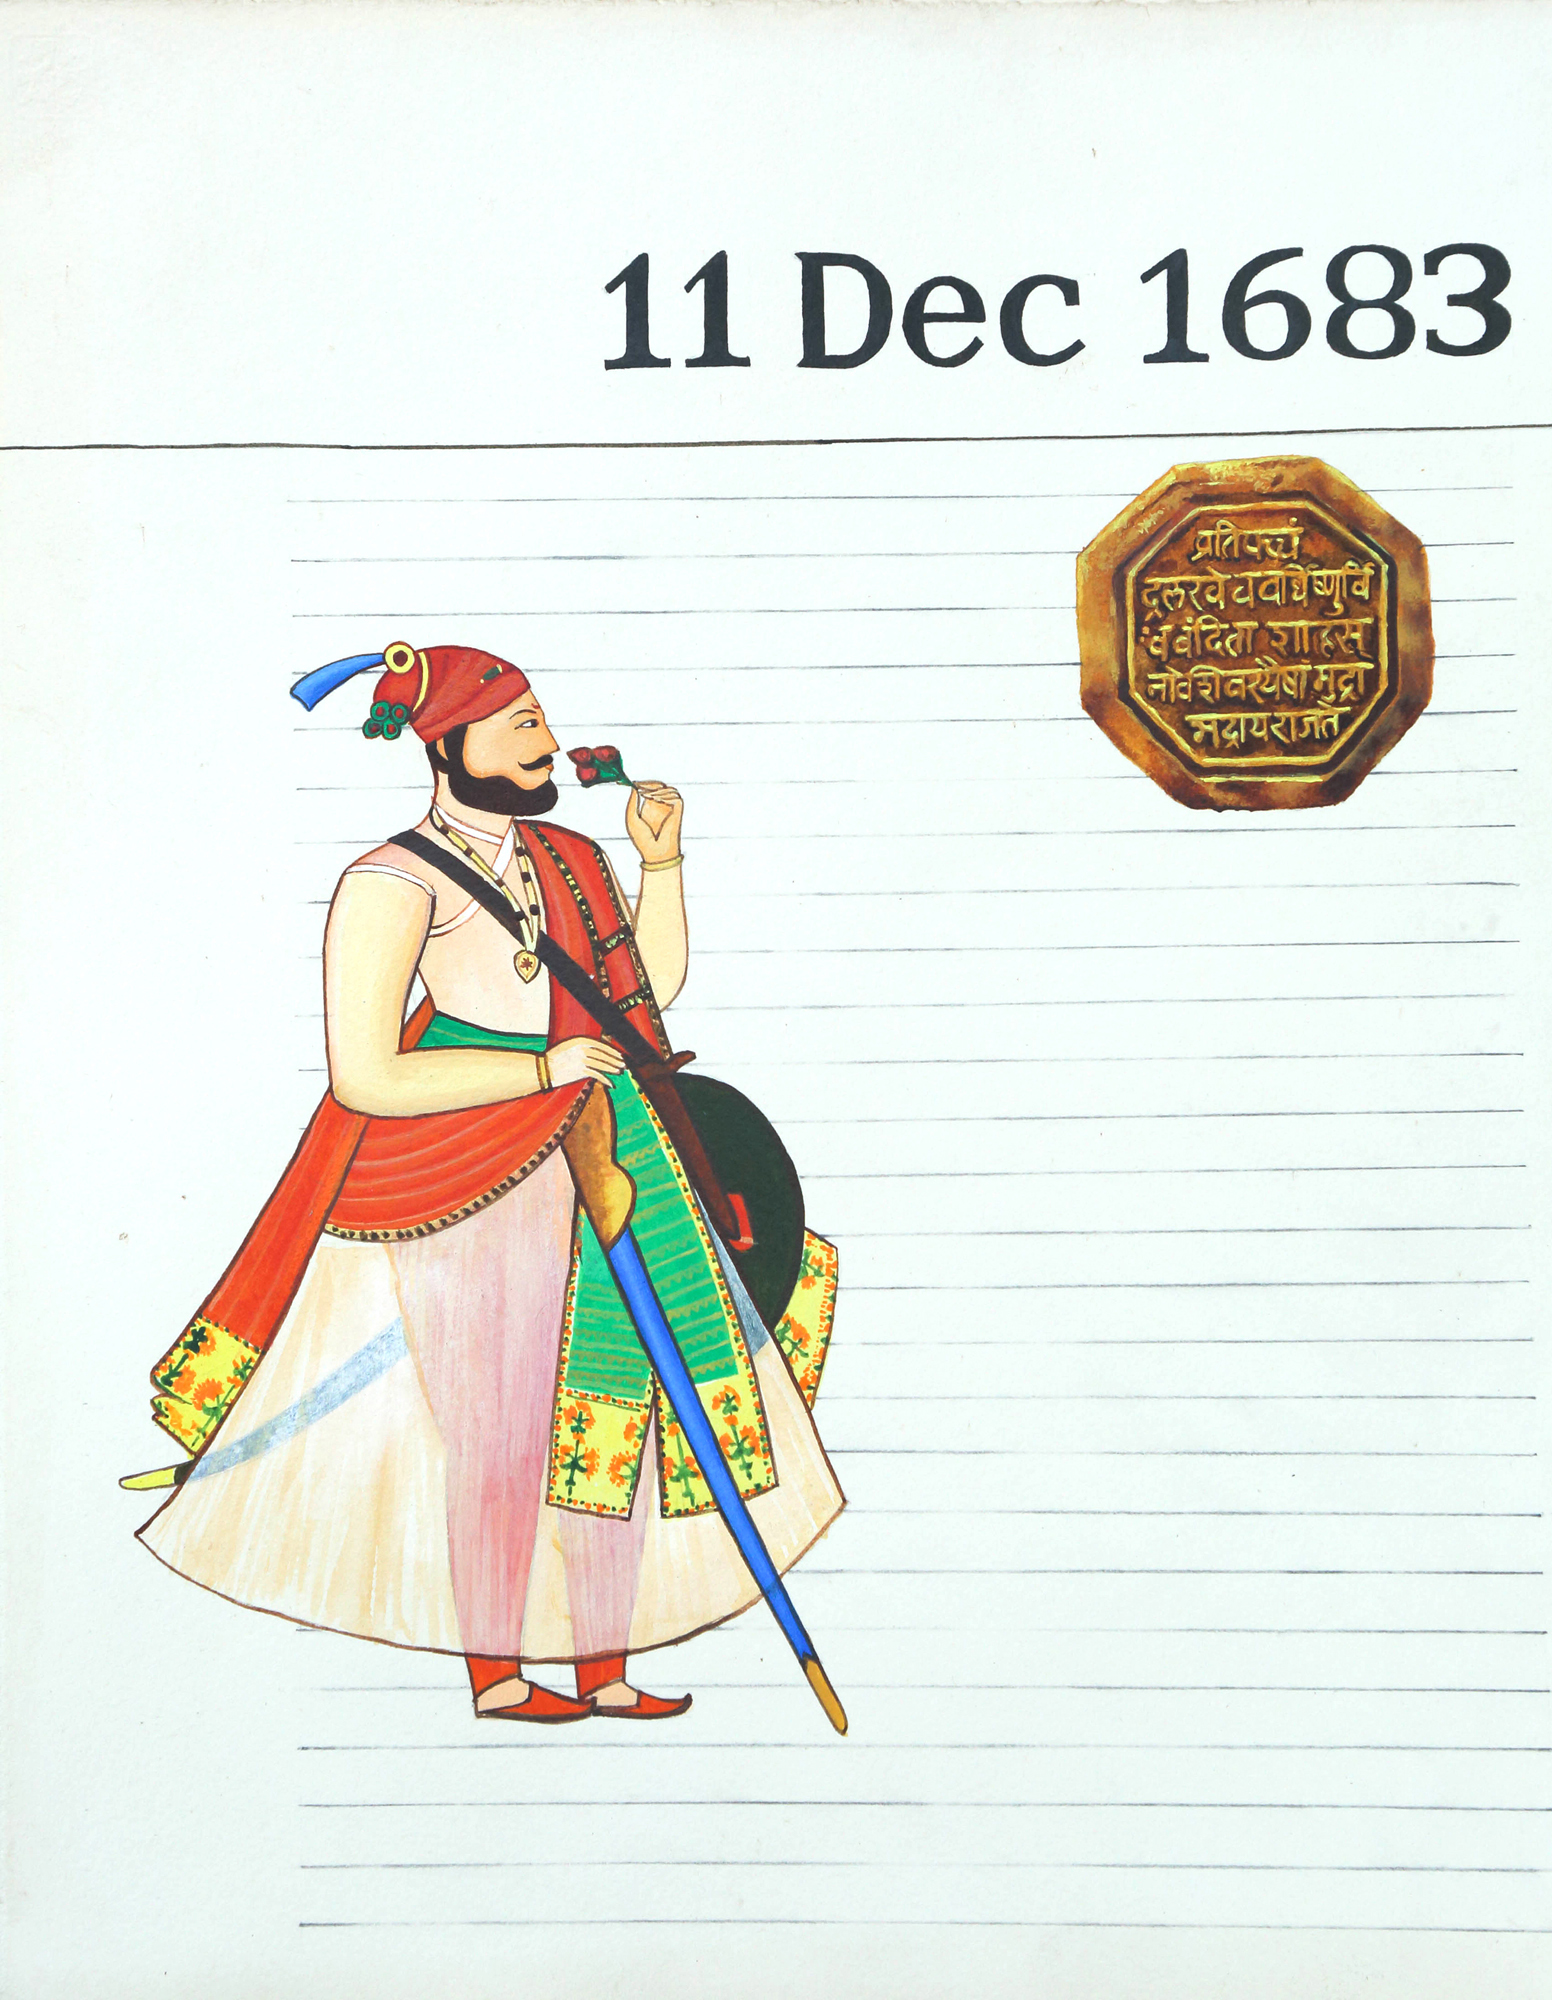 11 Dec 1683
प्रतिपच्चं
द्रलेरवेव वर्धिष्णुर्वि
श्ववंदिता शाहसू
नोः शिवस्यैषा मुद्रा
भद्राय राजते